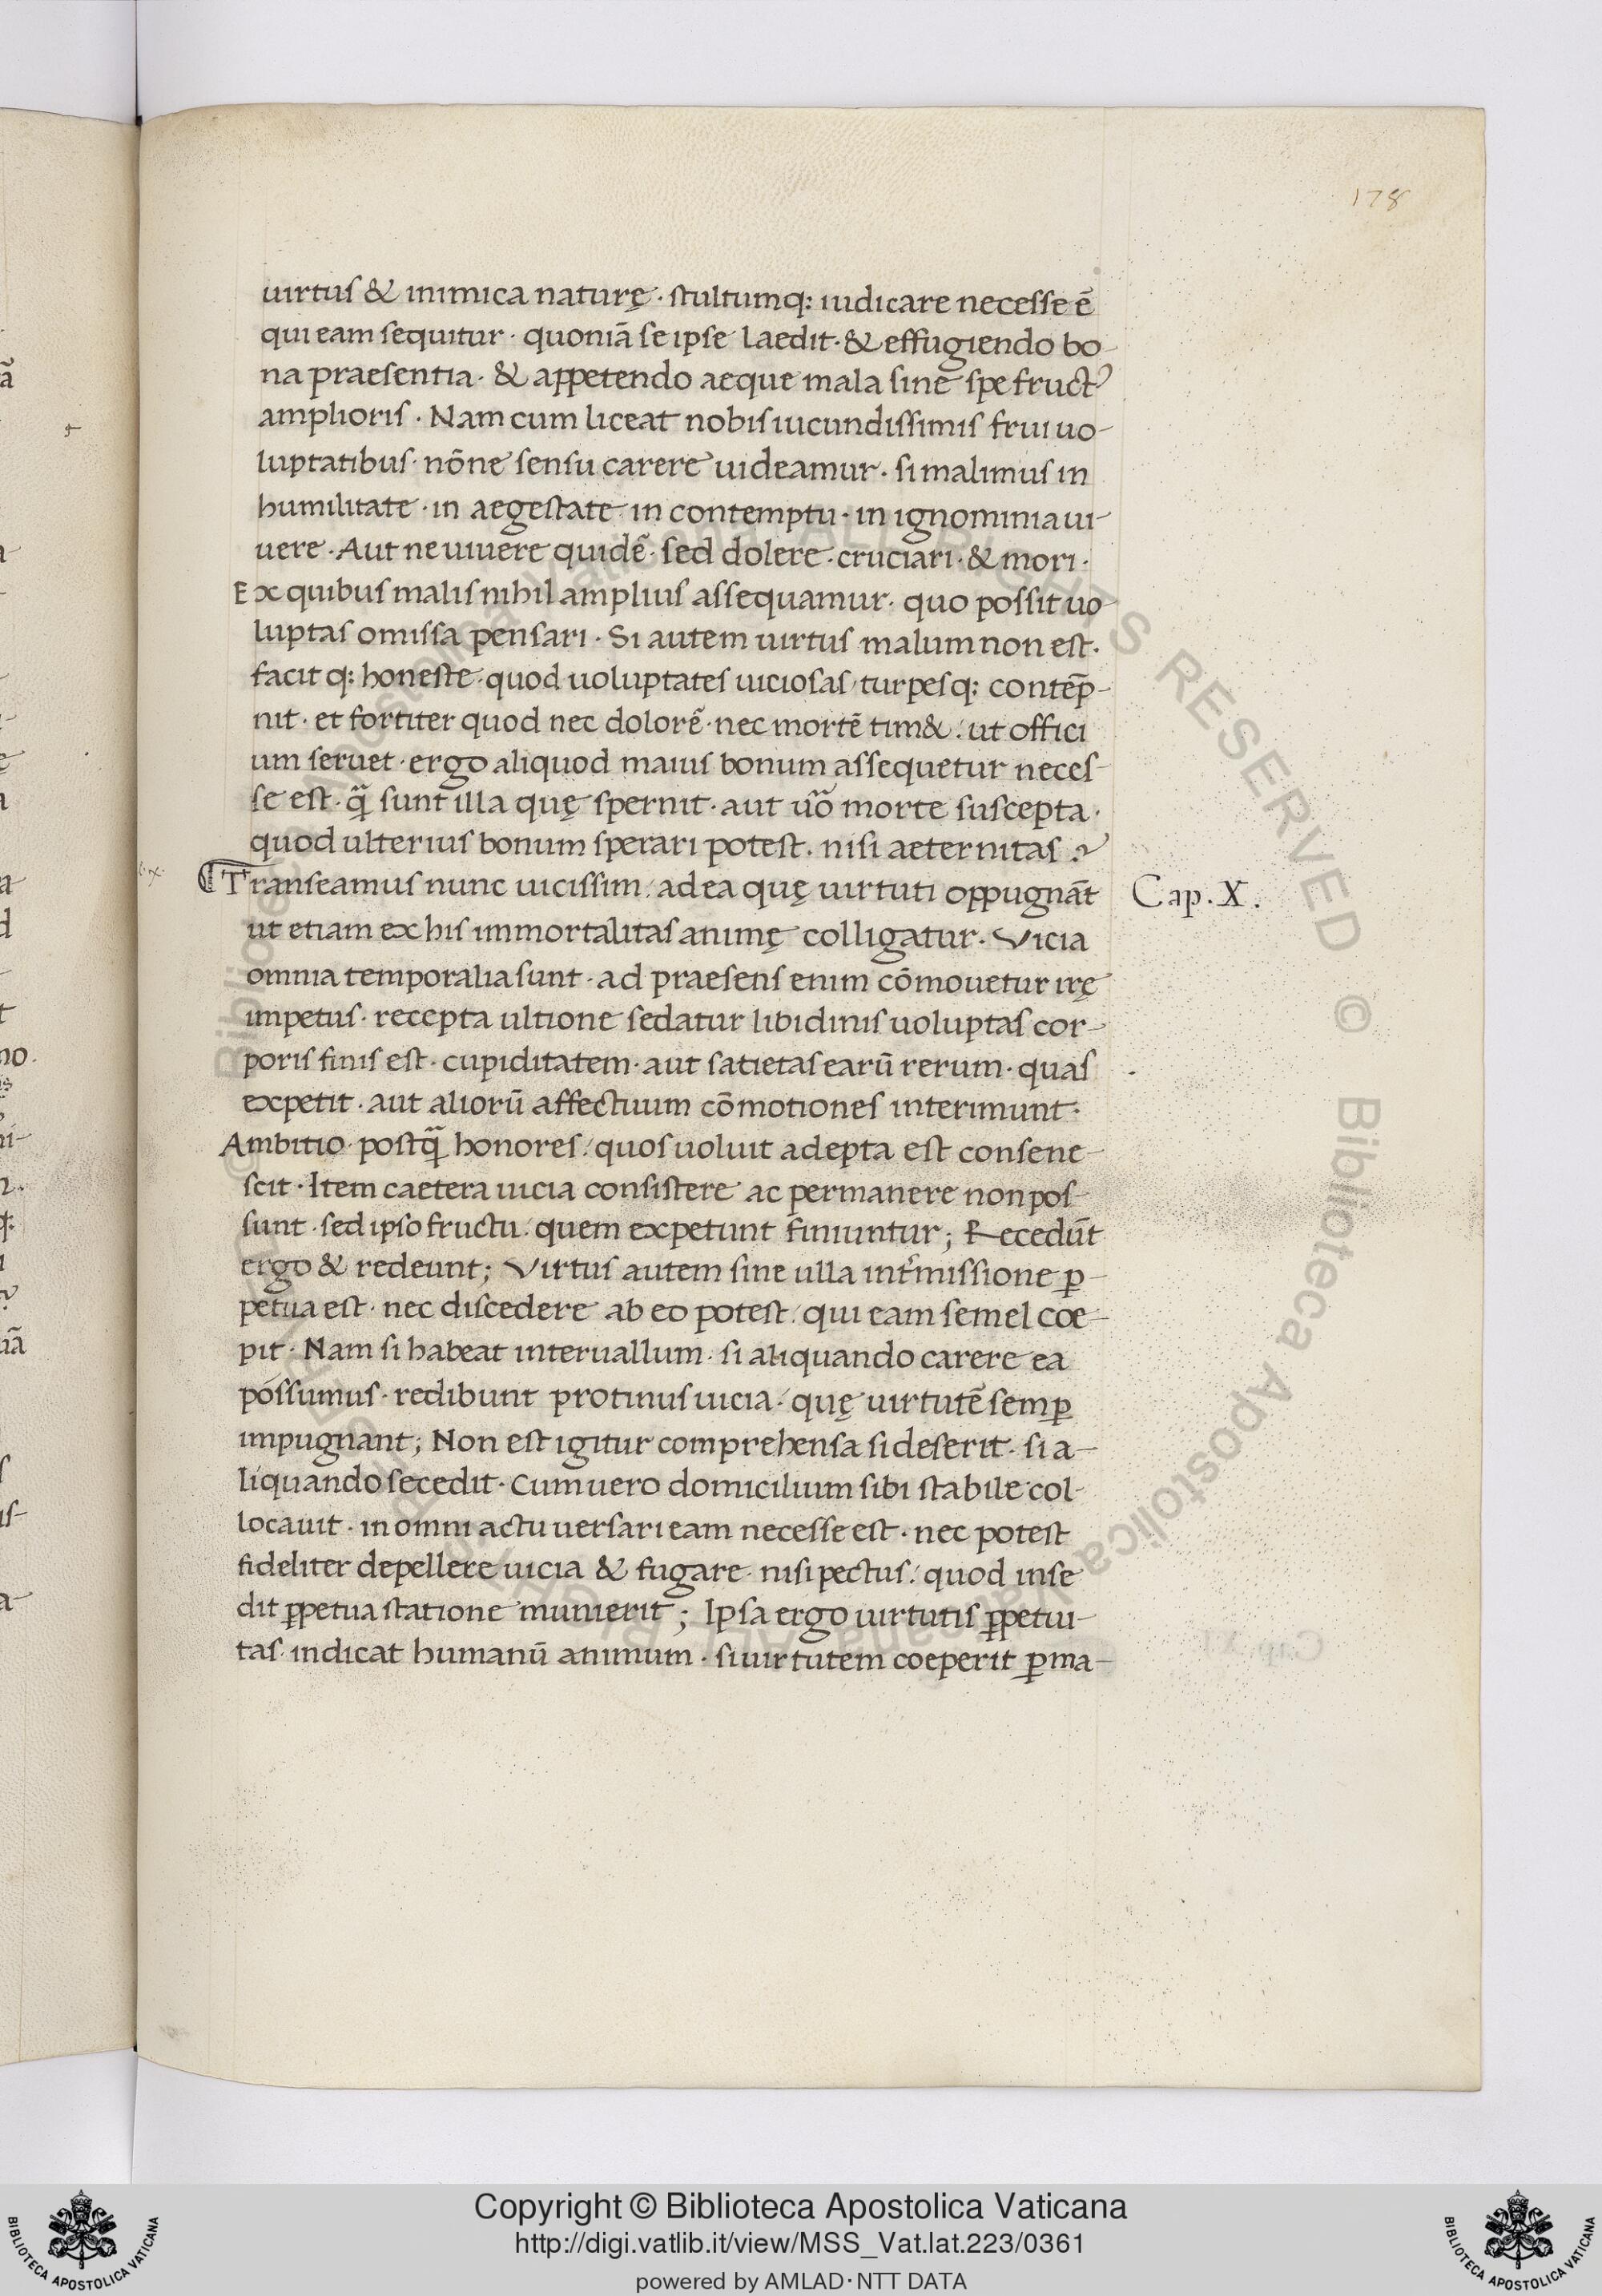 178
uirtus & inimica naturę · stultumq: iudicare necesse ē
qui eam sequitur · quoniā se ipse laedit · & effugiendo bo-
na praesentia · & appetendo aeque mala sine spe fruct᾽
amplioris · Nam cum liceat nobis iucundissimis frui uo-
luptatibus · nōne sensu carere uideamur · si malimus in
humilitate · in aegestate · in contemptu · in ignominia ui-
uere · Aut ne uiuere quidē · sed dolere · cruciari · & mori ·
Ex quibus malis nihil amplius assequamur · quo possit uo-
luptas omissa pensari · Si autem uirtus malum non est ·
facit q: honeste · quod uoluptates uiciosas / turpesq: contēp-
nit · et fortiter quod nec dolorē · nec mortē tim& / ut offici
um seruet · ergo aliquod maius bonum assequetur neces-
se est · q̄ sunt illa quę spernit · aut uo᷑ morte suscepta ·
quod ulterius bonum sperari potest · nisi aeternitas ?
Transeamus nunc uicissim / ad ea quę uirtuti oppugnāt
Cap. X.
ut etiam ex his immortalitas animę colligatur · Vicia
omnia temporalia sunt · ad praesens enim cōmouetur irę
impetus · recepta ultione sedatur libidinis uoluptas cor-
poris finis est · cupiditatem · aut satietas earū rerum · quas
expetit · aut aliorū affectuum cōmotiones interimunt ·
Ambitio · postq̄ honores / quos uoluit adepta est consene-
scit · Item caetera uicia consistere ac permanere non pos-
sunt · sed ipso fructu / quem expetunt finiuntur ; Recedūt
ergo & redeunt ; Virtus autem sine ulla int᾽missione ꝑ-
petua est · nec discedere ab eo potest / qui eam semel coe-
pit · Nam si habeat interuallum · si aliquando carere ea
possumus · redibunt protinus uicia / quę uirtutē semꝑ
impugnant ; Non est igitur comprehensa si deserit · si a-
liquando secedit · Cum uero domicilium sibi stabile col-
locauit · in omni actu uersari eam necesse est · nec potest
fideliter depellere uicia & fugare · nisi pectus / quod inse
dit ꝑpetua statione munierit ; Ipsa ergo uirtutis ꝑpetui-
tas · indicat humanū animum · si uirtutem coeperit ꝑma-
Copyright © Biblioteca Apostolica Vaticana
http://digi.vatlib.it/view/MSS_Vat.lat.223/0361
powered by AMLAD·NTT DATA